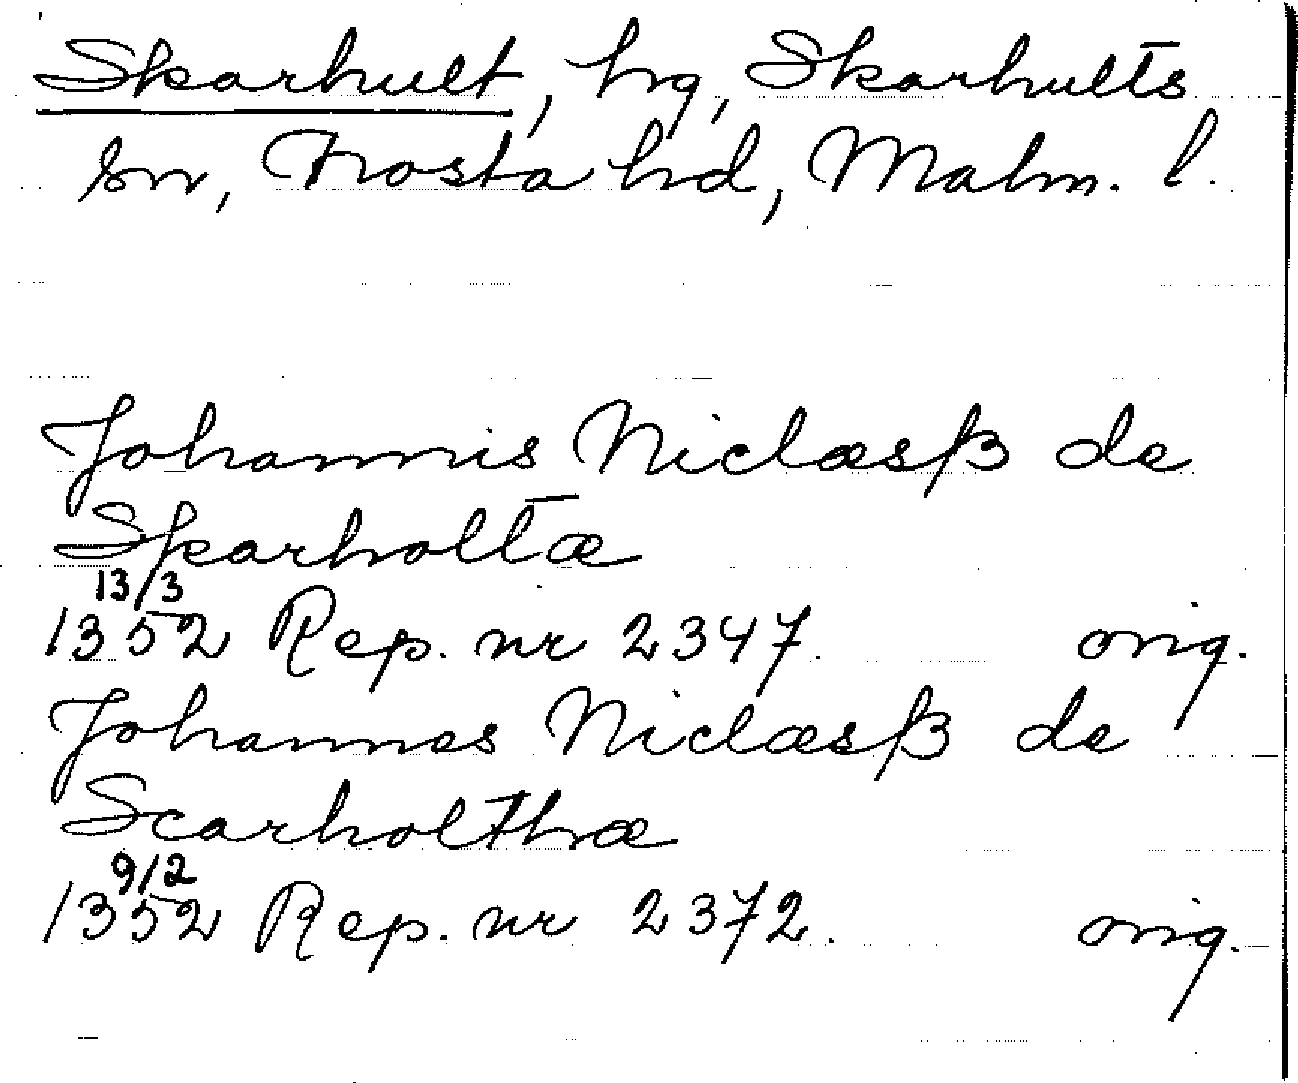 Skarhult, hg, Skarhults
sn, Frosta hd, Malm. l.
Johannis Niclæsß de
Skarholtæ
13/3
1352 Rep. nr 2347. orig.
Johannes Niclæsß de
Scarholthæ
9/2
1352 Rep. nr 2372. orig.